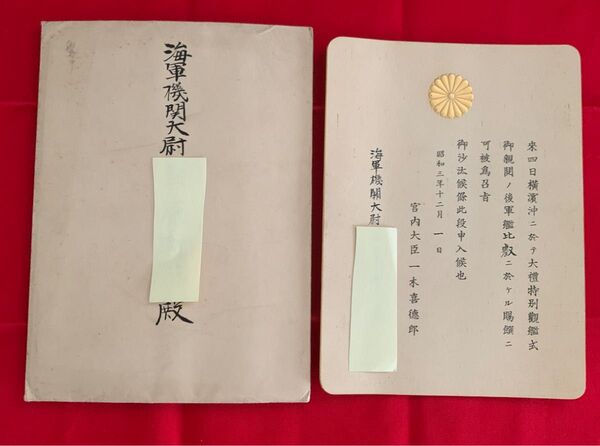 海軍機関大尉
殿
来四日横濱沖ニ於テ大禮特別觀艦式
御親閲ノ後軍艦比叡ニ於ケル賜饌ニ
可被為召旨
御沙汰候條此段申入候也
昭和三年十二月一日
宮内大臣一木喜德郎
海軍機関大尉